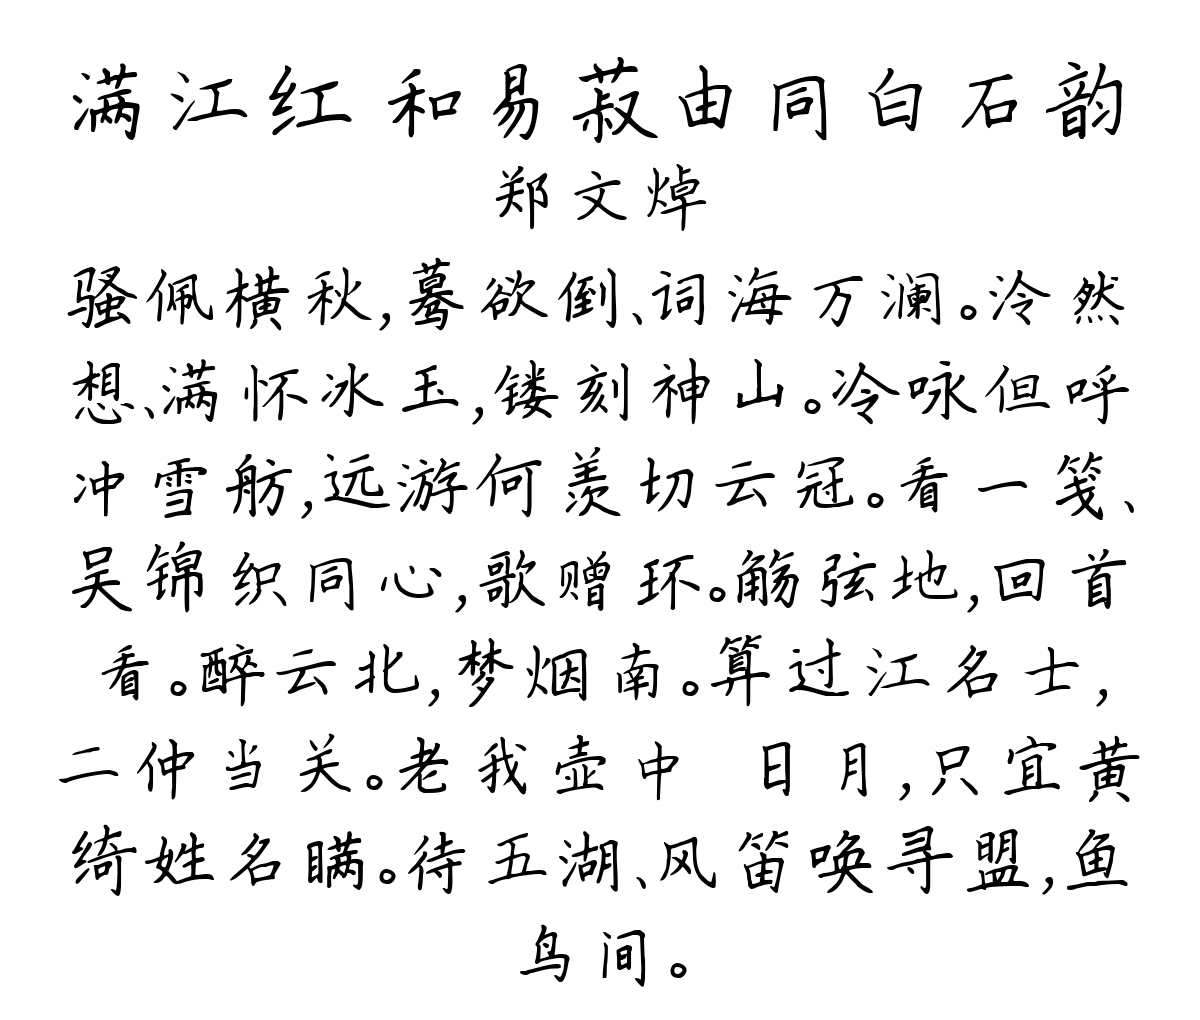 满江红 和易菽由同白石韵
郑文焯
骚佩横秋,蓦欲倒、词海万澜。泠然
想、满怀冰玉,镂刻神山。冷咏但呼
冲雪舫,远游何羡切云冠。看一笺、
吴锦织同心,歌赠环。觞弦地,回首
看。醉云北,梦烟南。算过江名士,
二仲当关。老我壶中 日月,只宜黄
绮姓名瞒。待五湖、风笛唤寻盟,鱼
鸟间。